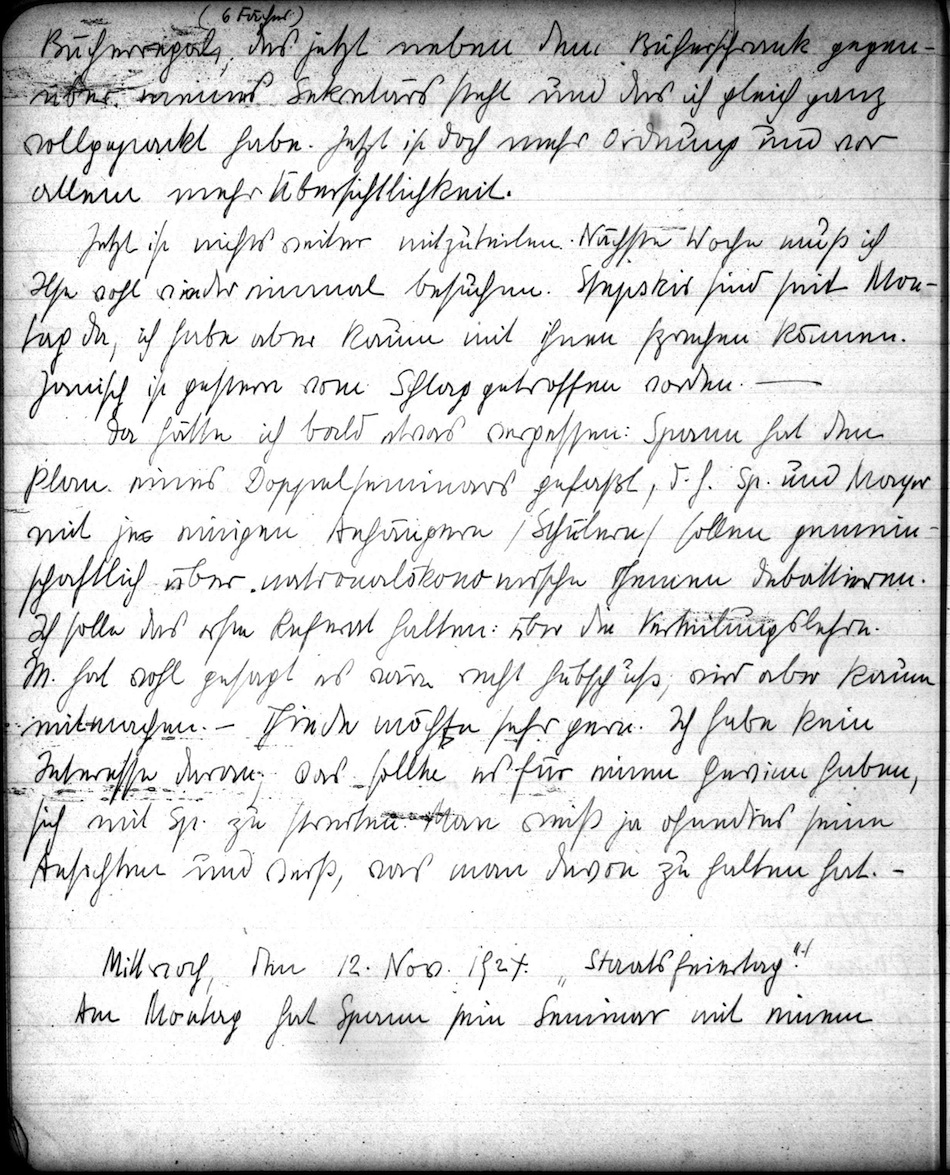 (6 Fächer)
Bücherregal, das jetzt neben dem Bücherschrank gegen-
über meines Sekretärs steht und das ich gleich ganz
vollgepackt habe. Jetzt ist doch mehr Ordnung und vor
allem mehr Übersichtlichkeit.
Jetzt ist nichts weiter mitzuteilen. Nächste Woche muß ich
Ilse wohl wieder einmal besuchen. sind seit Mon-
tag da, ich habe aber kaum mit ihnen sprechen können.
ist gestern vom Schlag getroffen worden. —
Da hätte ich bald etwas vergessen: Spann hat den
Plan eines Doppelseminars gefaßt, d. h. Sp. und Mayer
mit je einigen Anhängern /Schülern/ sollen gemein-
schaftlich über nationalökonomische Themen debattieren.
Ich solle das erste Referat halten: über die Verteilungslehre.
M. hat wohl gesagt es wäre recht hübsch usf., wird aber kaum
mitmachen. – möchte sehr gern. Ich habe kein
Interesse daran; was sollte es für einen Gewinn haben,
sich mit Sp. zu streiten. Man weiß ja ohnedies seine
Ansichten und weiß, was man davon zu halten hat. –
Mittwoch, den 12. Nov. 1924. „Staatsfeiertag“!
Am Montag hat Spann sein Seminar mit einem